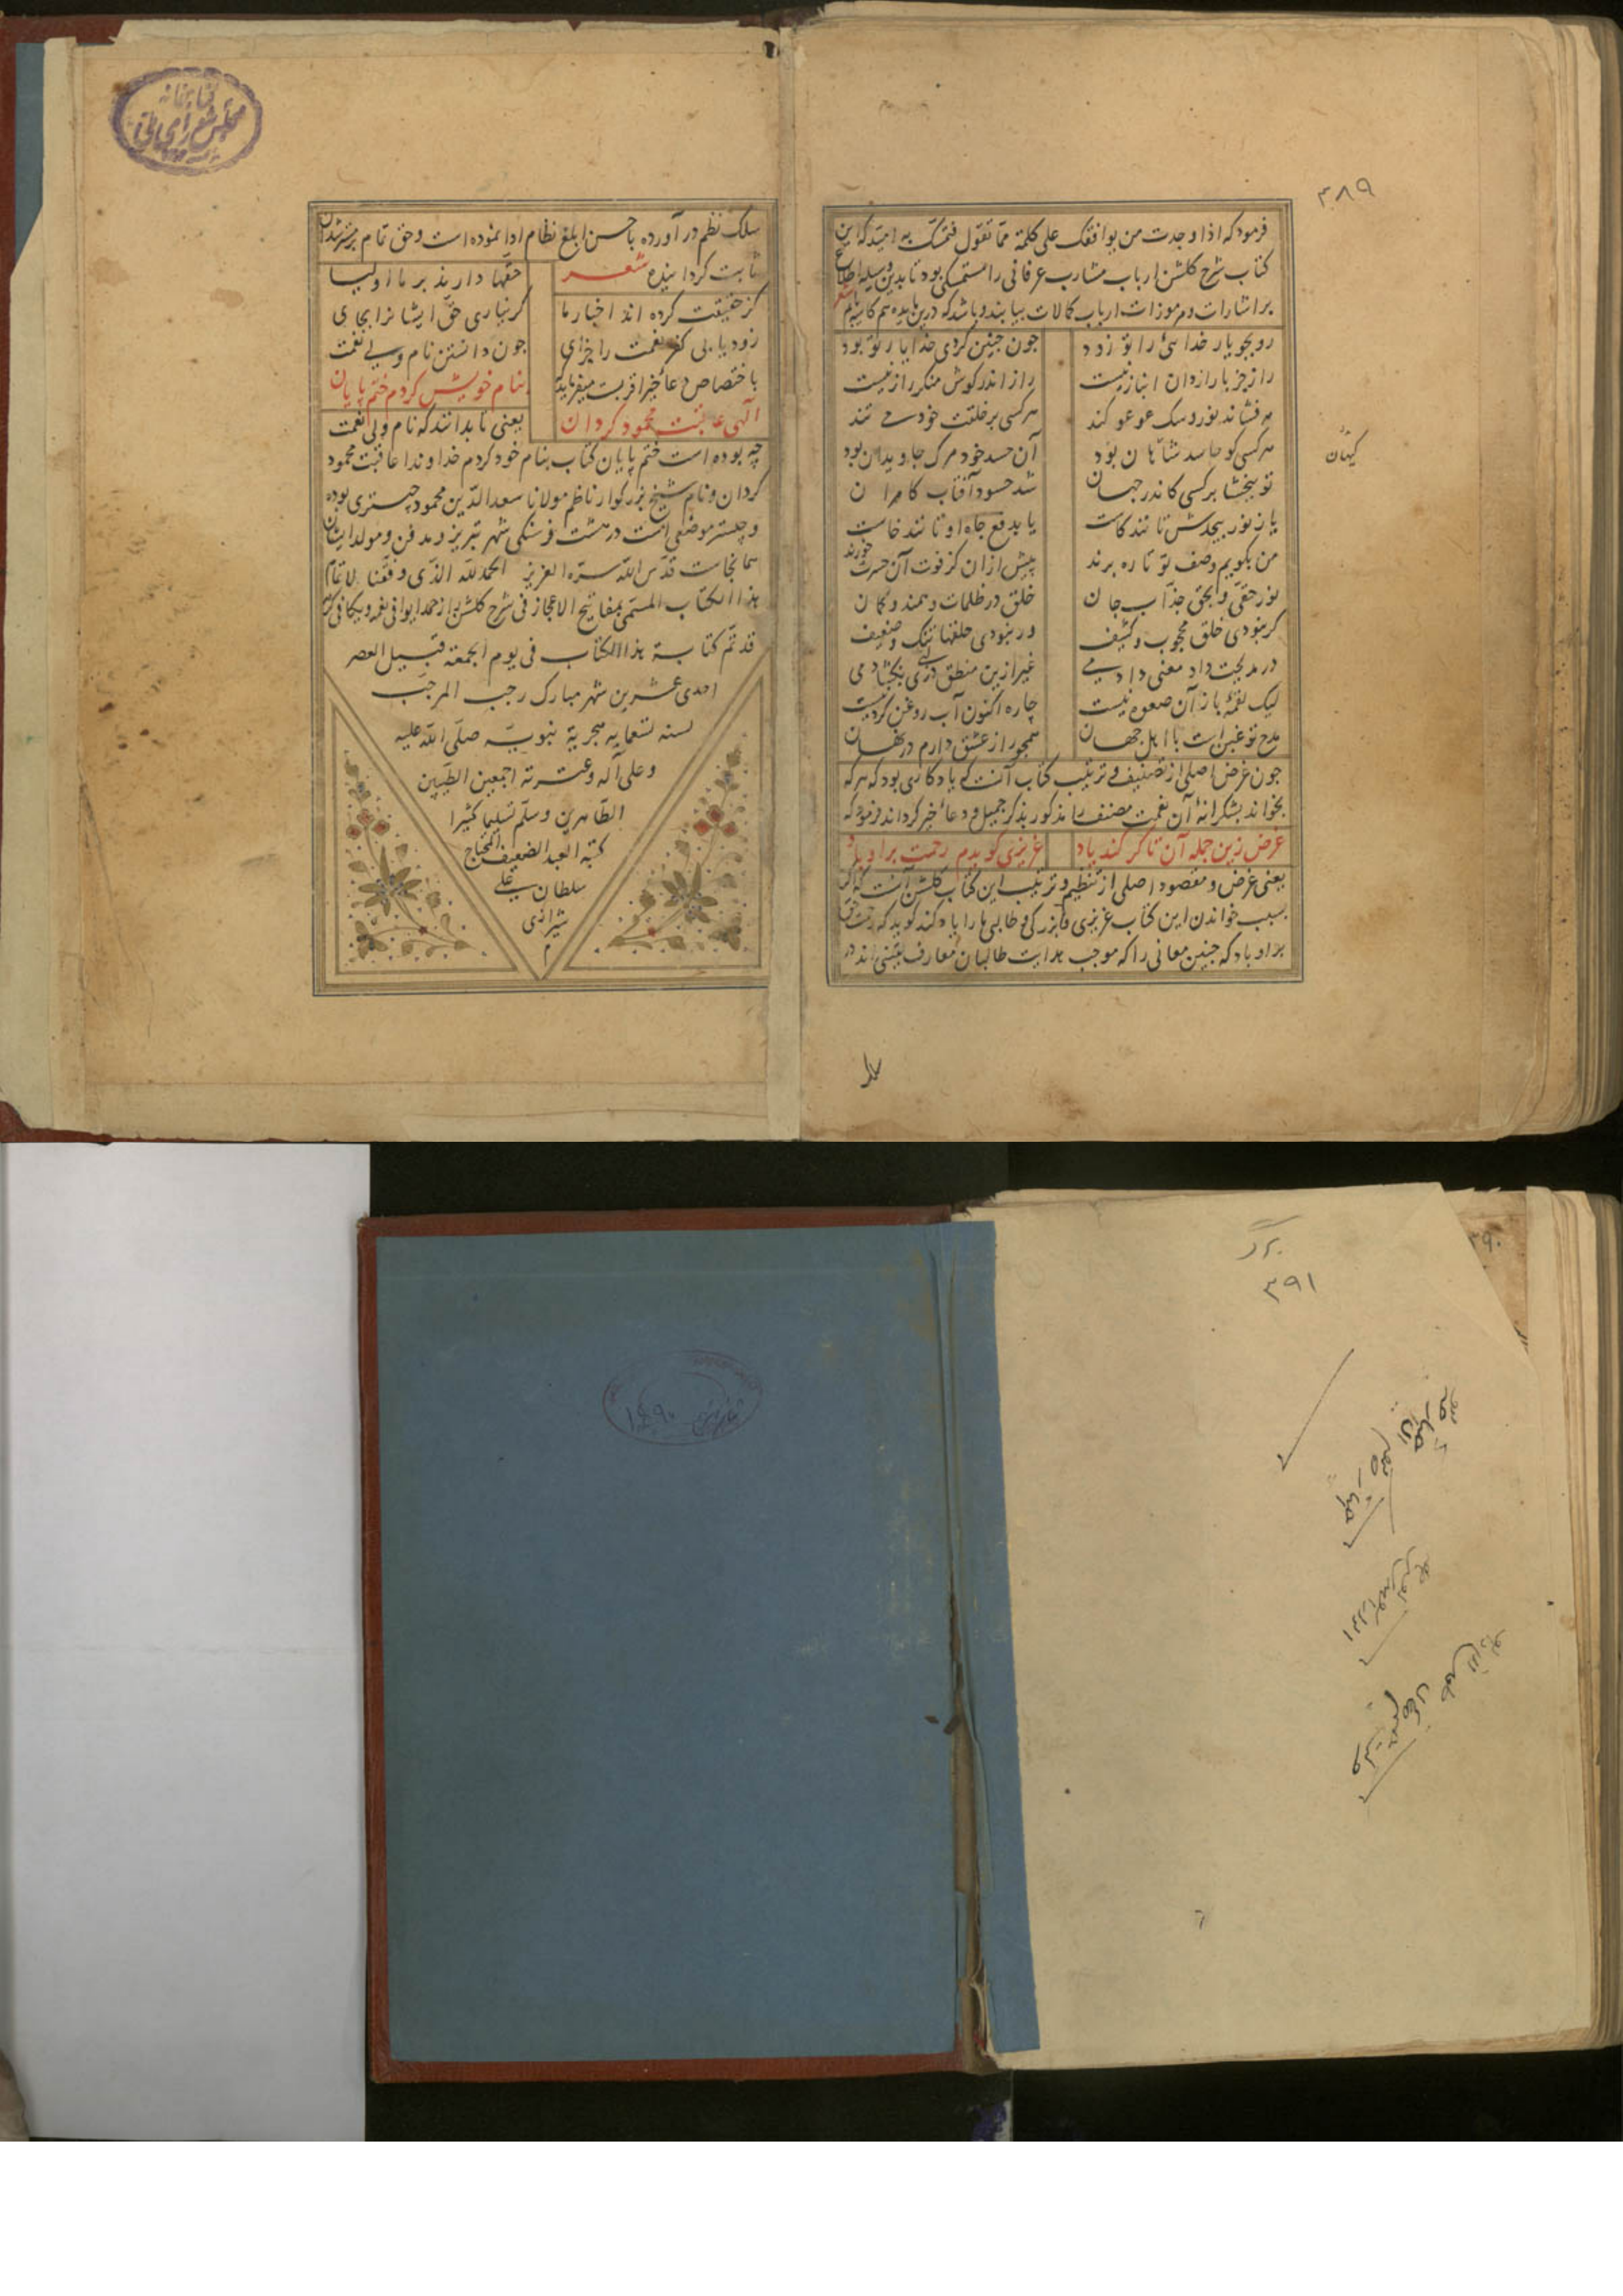 ۳۸۹
فرمود که اذا وجدت من یوافقک علی کلمة مما تقول فتمسک به امید که این
کتاب شرح کلشن ارباب مشارب عرفانی را مستمسکی بود تا بدین وسیله اطلاع
بر اشارات و مرموزات ارباب کمالات بیابند و باشد که درین
رو بجو یار خدایی را تو زود جون جنین کردی خدا یار تو بود
راز جز با رازدان انباز نیست راز اندر کوش منکر راز نیست
مه فشاند نور و سک عوعو کند هر کسی بر خلقت خود می تند
هر کسی کو حاسد شاهان بود آن حسد خود مرک جاویدان بود
تو ببخشا بر کسی کاندر جهان شد حسود آفتاب کامران
یا ز نور بیحدش تانند کاست یا بدفع جاه او تانند خاست
من بکویم وصف تو تا ره برند پیش ازان کز فوت آن حسرت خورند
نور حقی و بحق جذاب جان خلق در ظلمات وهمند و کمان
کر نبودی خلق محجوب و کثیف ور نبودی حلقها تنک و ضعیف
در مدیحت داد معنی دادمی غیر ازین منطق لبی بکشادمی
لیک لقمه باز آن صعوه نیست چاره اکنون آب روغن کردنیست
مدح تو غبن است با اهل جهان همجو راز عشق دارم در نهان
کیهان
جون غرض اصلی از تصنیف و ترتیب کتاب آنست که یادکاری بود که هر که
بخواند بشکرانه آن نعمت مصنف را مذکور بذکر جمیل و دعا خیر کرداند فرمود که
غرض زین جمله آن تا کر کند یاد عزیزی کویدم رحمت برو باد
یعنی غرض و مقصود اصلی از تنظیم و ترتیب این کتاب کلشن آنست که اکر
بسبب خواندن این کتاب عزیزی و بزرکی و طالبی ما را یاد کند کوید که رحمت حق
بر او باد که جنین معانی را که موجب هدایت طالبان معارف یقینی اند در
کتابخانه
مجلس شورای ملی
سلک نظم در آورده باحسن ابلغ نظام ادا نموده است و حق تمام بر مسترشدان
ثابت کردانیده شعر حقها دارند بر ما اولیا
کز حقیقت کرده اند اخبار ما کر نیاری حق ایشانرا بجای
زود یابی کفر نعمت را جزای جون دانستن نام ولی نعمت
باختصاص دعا خیر اقربست میفرماید بنام خویش کردم ختم پایان
الهی عاقبت محمود کردان یعنی تا بدانند که نام ولی نعمت
چه بوده است ختم پایان کتاب بنام خود کردم خداوندا عاقبت محمود
کردان و نام شیخ بزرکوار ناظم مولانا سعد الدین محمود چبستری بوده
و چبستر موضعی است در هشت فرسنکی شهر تبریز و مدفن و مولد ایشان
همانجاست قدس الله سره العزیز الحمد لله الذی وفقنا لاتمام
هذا الکتاب المسمی بمفاتیح الاعجاز فی شرح کلشن راز حمدا یوافی نعمه ویکافی کرمه
قد تم کتابة هذا الکتاب فی یوم الجمعة قبیل العصر
احدی عشرین شهر مبارک رجب المرجب
لسنه تسعمایه هجریة نبویة صلی الله علیه
و علی آله و عترته اجمعین الطیبین
الطاهرین وسلم تسلیما کثیرا
کتبه العبد الضعیف المحتاج
سلطان علی
شیرازی
م
۳۹۰
برک
۳۹۱